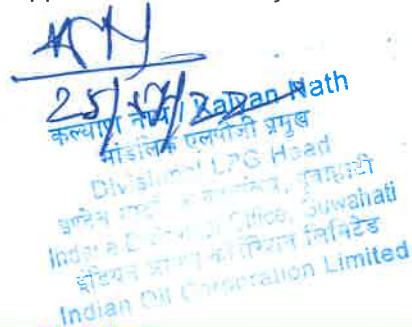 25/
कल्याण नाथ / Kalyan Nath
मंडलिक एलपीजी प्रमुख
Divisional LPG Head
गुवाहाटी
Indane Divisional Office, Guwahati
इंडियन ऑयल कॉर्पोरेशन लिमिटेड
Indian Oil Corporation Limited